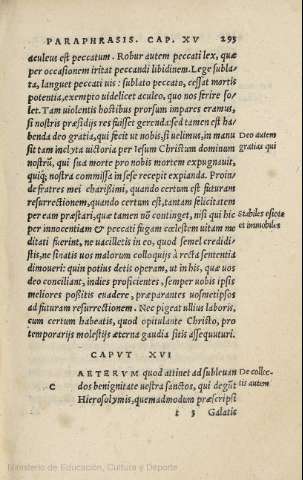 PARAPHRASIS. CAP. XV 293
aculeus est peccatum. Robur autem peccati lex, quæ
per occasionem iritat peccandi libidinem. Lege subla-
ta, languet peccati uis: sublato peccato, cessat mortis
potentia, exempto uidelicet aculeo, quo nos ferire so-
let. Tam uiolentis hostibus prorsum inpares eramus,
si nostris præsidijs res fuisset gerenda. sed tamen est ha-
benda deo gratia, qui fecit ut nobis, si uelimus, in manu
sit tam inclyta uictoria per Iesum Christum dominum
nostrū, qui sua morte pro nobis mortem expugnauit,
quiq; nostra commissa in sese recepit expianda. Proin-
de fratres mei charissimi, quando certum est futuram
resurrectionem, quando certum est, tantam felicitatem
per eam præstari, quæ tamen nō continget, nisi qui hic
per innocentiam & peccati fugam cœlestem uitam me
ditati fuerint, ne uacilletis in eo, quod semel credidi-
stis, ne sinatis uos malorum colloquijs à recta sententia
dimoueri: quin potius detis operam, ut in his, quæ uos
deo conciliant, indies proficientes, semper uobis ipsis
meliores possitis euadere, præparantes uosmetipsos
ad futuram resurrectionem. Nec pigeat ullius laboris,
cum certum habeatis, quod opitulante Christo, pro
temporarijs molestijs æterna gaudia sitis assequuturi.
Deo autem
gratias qui
Stabiles estote
et immobiles
CAPVT XVI
CAETERVM quod attinet ad subleuan
dos benignitate uestra sanctos, qui degūt
Hierosolymis, quemadmodum præscripsi
De collec-
tis autem
t 3 Galatis
Ministerio de Educación, Cultura y Deporte